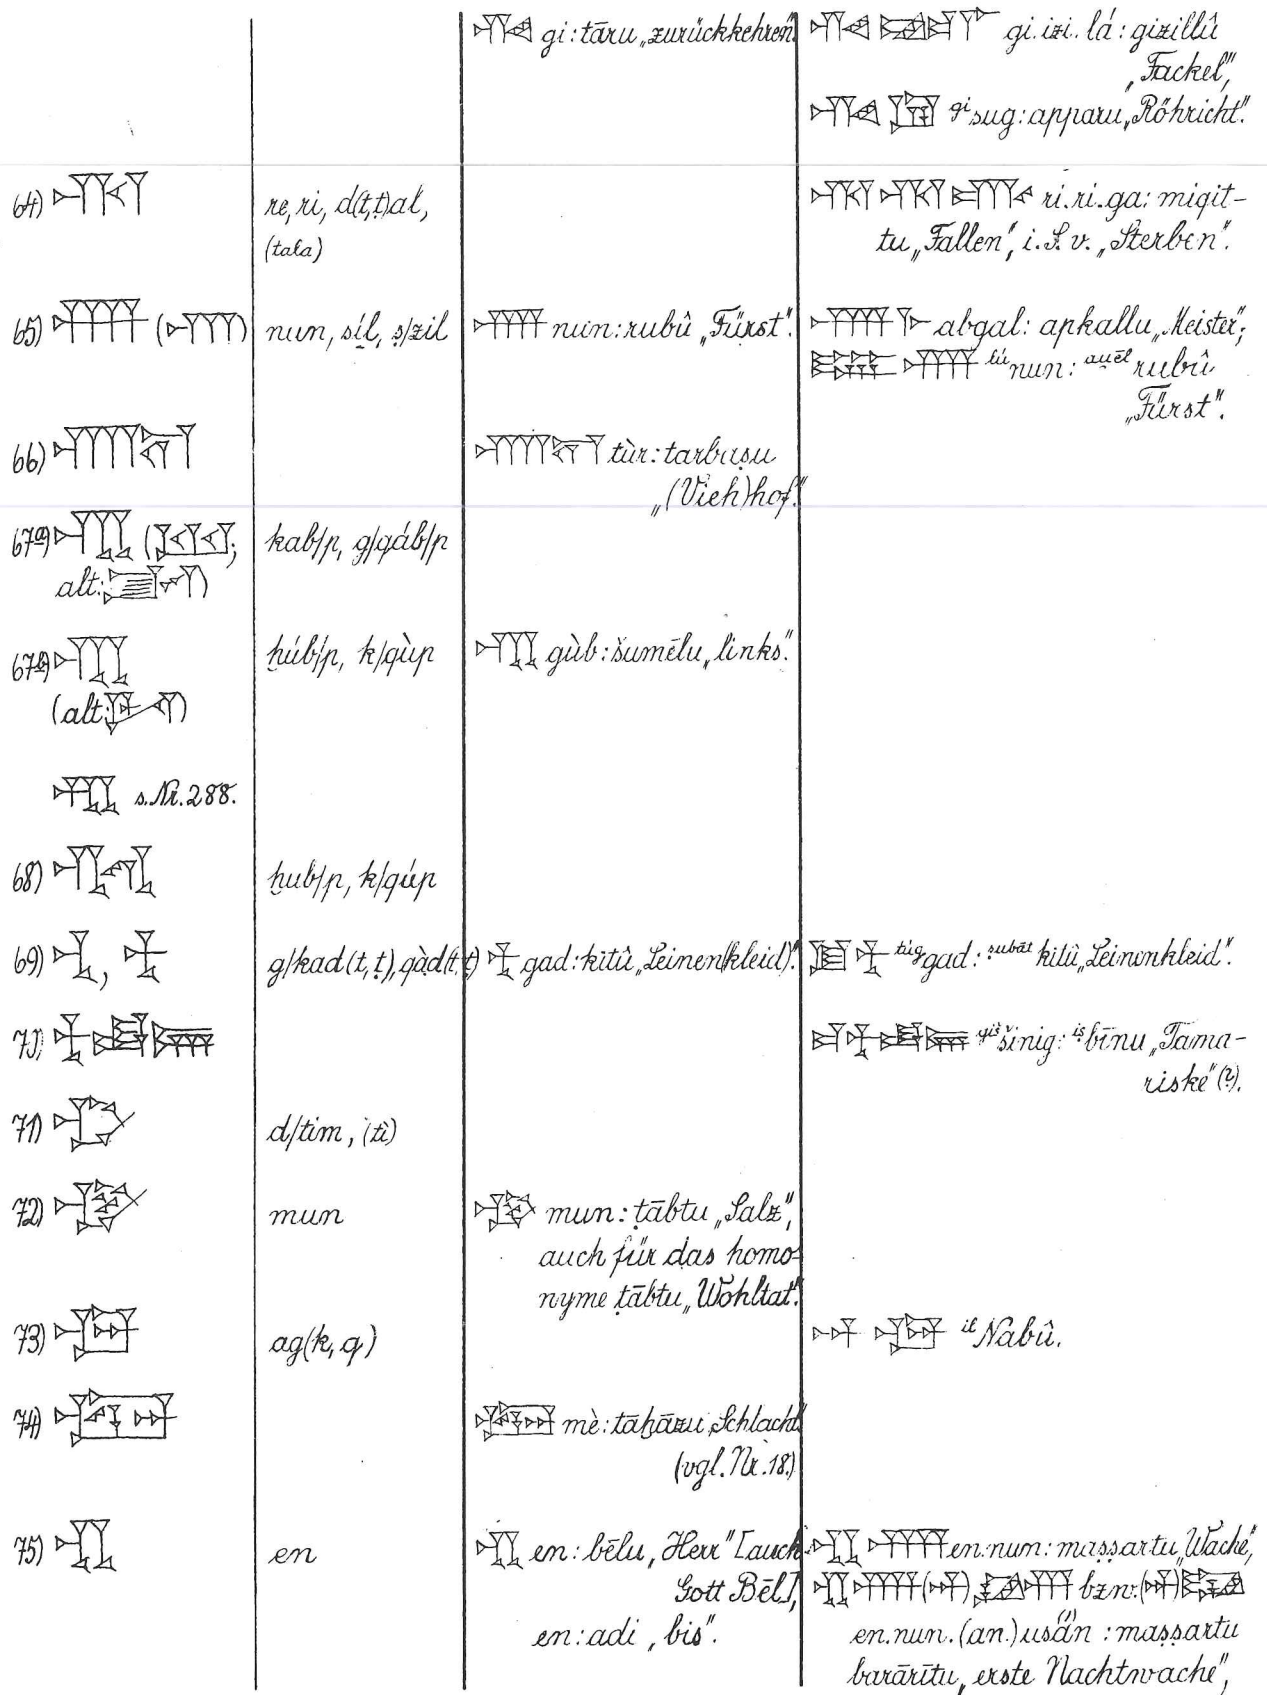 gi: tāru „zurückkehren“.
gi.izi.lá: gizillû
„Fackel“,
gi sug: apparu „Röhricht“.
64) re, ri, d(t,ṭ)al,
(tala)
ri.ri.ga: miqit-
tu „Fallen“, i.S.v. „Sterben“.
65) nun, síl, ṣ/zil
nun: rubû „Fürst“.
abgal: apkallu „Meister“;
lú nun: au̯ēl rubû
„Fürst“.
66)
tùr: tarbaṣu
„(Vieh)hof“.
67a) kab/p, g/qáb/p
alt:
67b) ḫúb/p, k/qùp
gùb: šumēlu „links“.
(alt: )
s. Nr. 288.
68) ḫub/p, k/qúp
69) g/kad(t,ṭ), qàd(t,ṭ)
gad: kitû „Leinen(kleid)“.
túg gad: ṣubāt kitû „Leinenkleid“.
70)
giš šinig: iṣ bīnu „Tama-
riske“ (?).
71) d/tim, (tì)
72) mun
mun: ṭābtu „Salz“,
auch für das homo-
nyme ṭābtu „Wohltat“.
73) ag(k, q)
il Nabû.
74)
mè: tāḫāzu „Schlacht“
(vgl. Nr. 18.)
75) en
en: bēlu „Herr“ [auch
Gott Bēl],
en: adi „bis“.
en.nun: maṣṣartu „Wache“,
bzw.
en.nun.(an.)usán: maṣṣartu
barārītu „erste Nachtwache“,